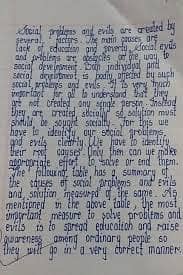 Social problems and evils are created by
several factors. The main causes are
lack of education and poverty. Social evils
and problems are obstacles on the way to
social development. Both individual and
social development is badly affected by such
social problems and evils. It is very much
important for all to understand that they
are not created any single person. Instead
they are created, socially, so solution must
should be sought socially, for this we
have to identify our social problems,
and evils clearly. We have to identify
their root causes. Only then can we make
appropriate effort to solve or end them.
The following table has a summary of
the causes of social problems and evils
and, solution measured of the same. As
mentioned in the above table, the most
important measure to solve problems and
evils is to spread education and raise
awareness among ordinary people so
they will go in a very correct manner.